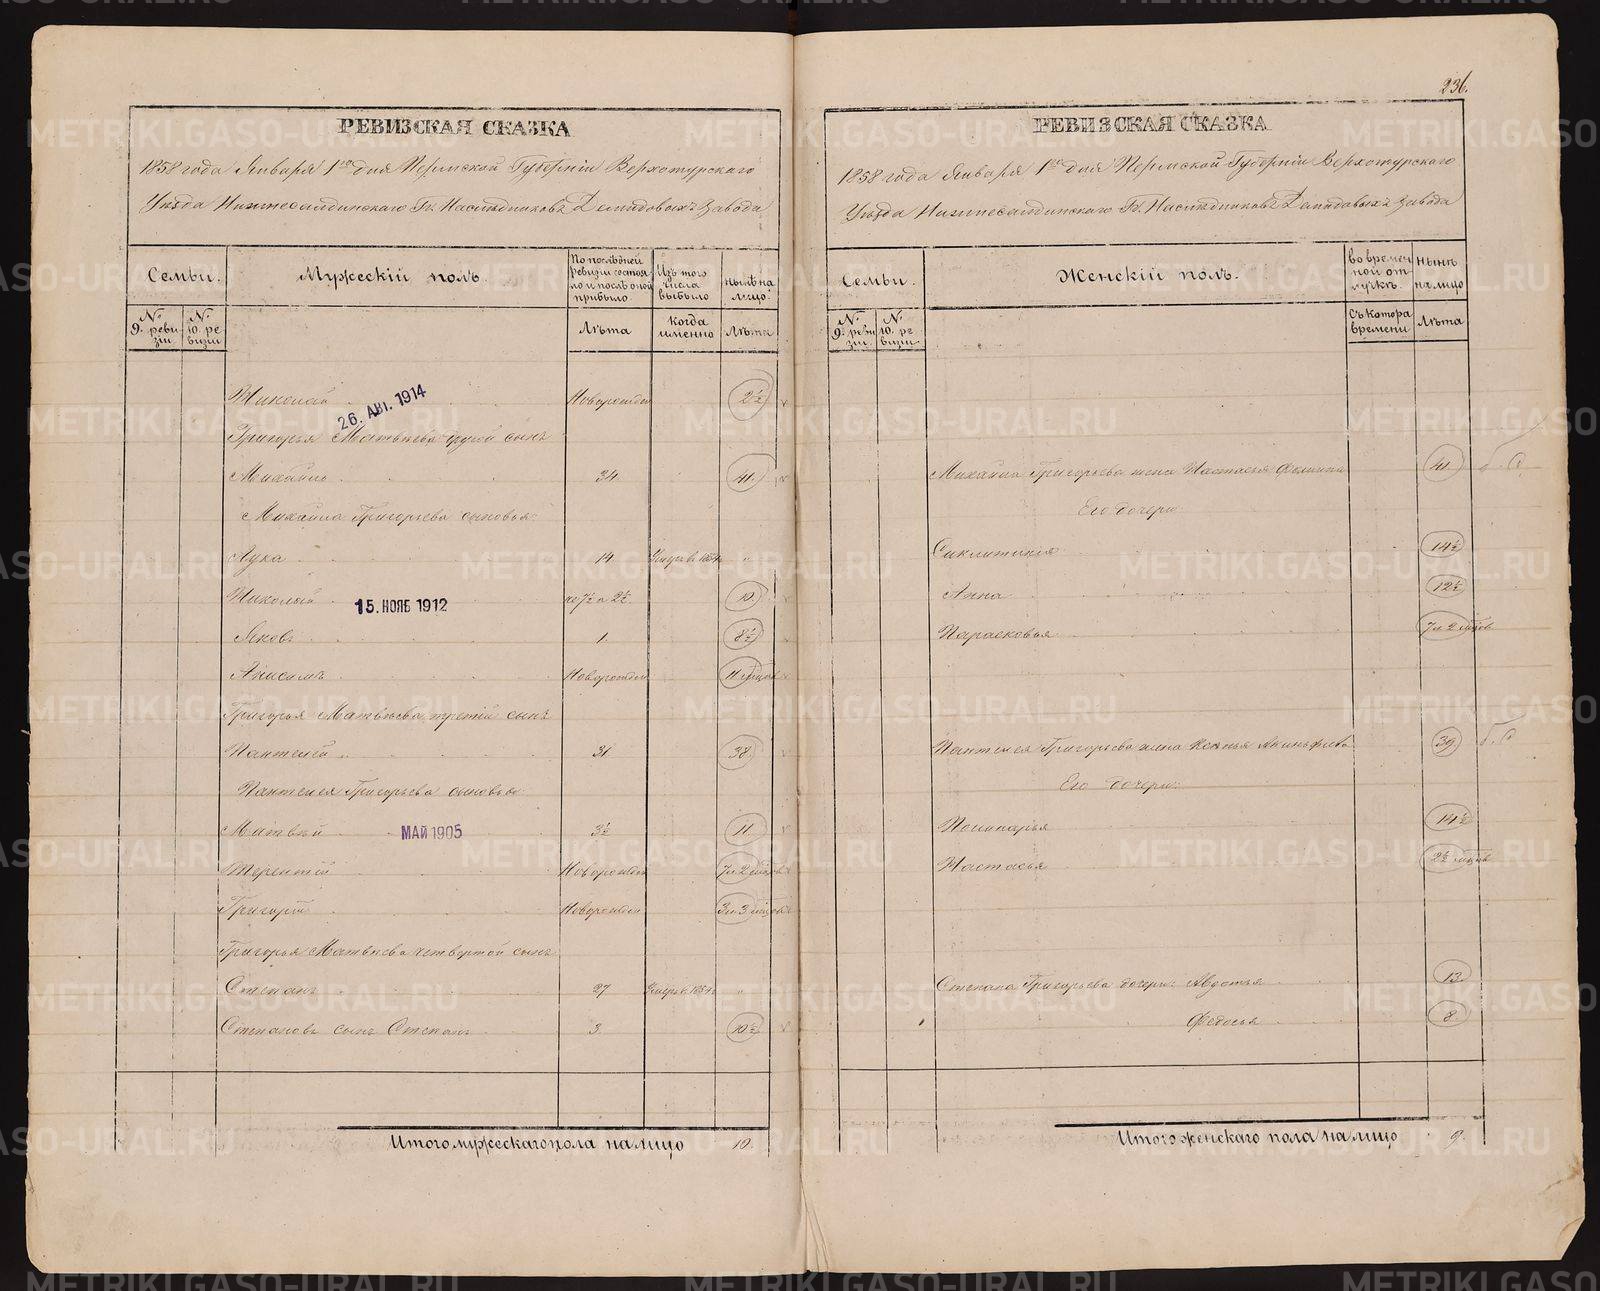 236.
РЕВИЗСКАЯ СКАЗКА
1858 года Января 1го дня Пермской Губерніи Верхотурскаго
Уѣзда Нижнесалдинскаго Гг. Наслѣдниковъ Демидовыхъ Завода
Семьи.
Мужескій полъ.
По послѣдней ревизіи состояло и послѣ оной прибыло
Изъ того числа выбыло
Нынѣ на лицо.
№ 9. ревизіи
№ 10. ревизіи
Лѣта
Когда именно
Лѣта
Николай Новорожден 2½
26. АВГ. 1914
Григорья Матвѣева другой сынъ
Михайло 34. 41.
Михайла Григорьева сыновья:
Лука 14 Умеръ в. "
Николай 2½ 10.
15. НОЯБ 1912
Яковъ 1. 8½
Анисимъ Новорожден 11 мѣсцов
Григорья Матвѣева третій сынъ
Пантелей 31 38.
Пантелея Григорьева сыновья:
Матвей 3½ 11.
МАЙ 1905
Терентій Новорожден 7 и 2 мѣсцов
Григорій Новорожден 3 и 3 мѣсцов
Григорья Матвѣева четвертой сынъ
Степанъ 27 Умеръ в. "
Степановъ сынъ Степанъ 3. 10½
Итого мужескаго пола на лицо 10.
РЕВИЗСКАЯ СКАЗКА
1858 года Января 1го дня Пермской Губерніи Верхотурскаго
Уѣзда Нижнесалдинскаго Гг. Наслѣдниковъ Демидовыхъ Завода
Семьи.
Женскій полъ.
во временной отлучкѣ.
Нынѣ на лицо
№ 9. ревизіи
№ 10. ревизіи
Съ котора времени
Лѣта
Михайла Григорьева жена Настасья 41.
Его дочери
Синклитикія 14½
Анна 12½
Парасковья 7 и 2 мѣсцов
Пантелея Григорьева жена Ксенья 39
Его дочери:
14½
Настасья 2½
Степана Григорьева дочери: Авдотья 13
Федосья 8.
Итого женскаго пола на лицо 9.
METRIKI.GASO-URAL.RU